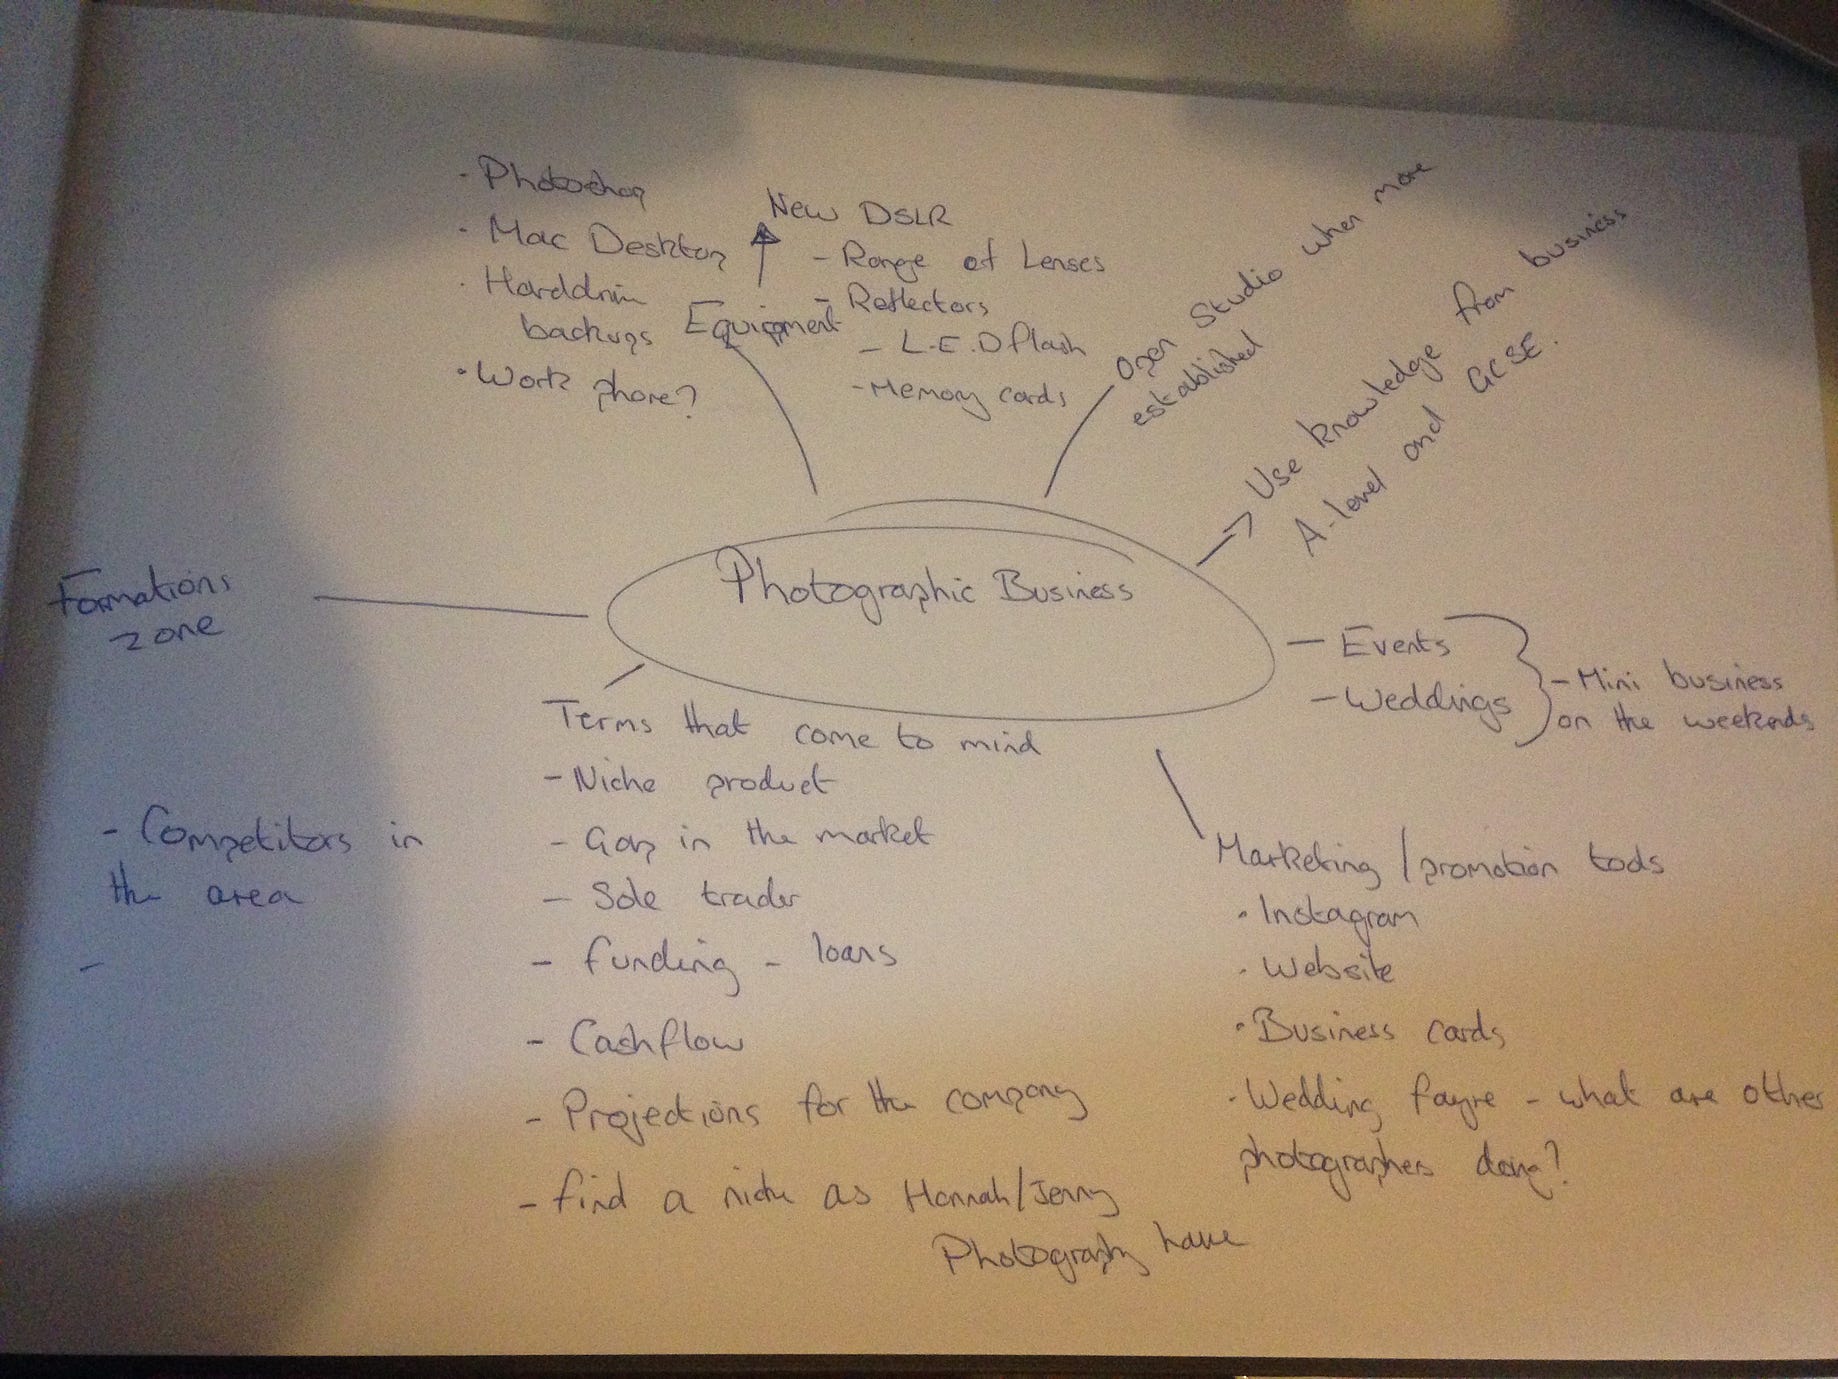 · Photoshop
· Mac Desktop
· Harddrive
backups
· Work phone?
Equipment
New DSLR
- Range of Lenses
- Reflectors
- L.E.D flash
- Memory cards
Open Studio when more
established
Use knowledge from business
A-level and GCSE.
Photographic Business
Formations
zone
- Events
- Weddings
- Mini business
on the weekends
Terms that come to mind
- Niche product
- Gap in the market
- Sole trader
- Funding - loans
- Cashflow
- Projections for the company
- find a niche as Hannah/Jenny
Photography have
- Competitors in
the area
-
Marketing / promotion tools
· Instagram
· Website
· Business cards
· Wedding fayre - what are other
photographers doing?